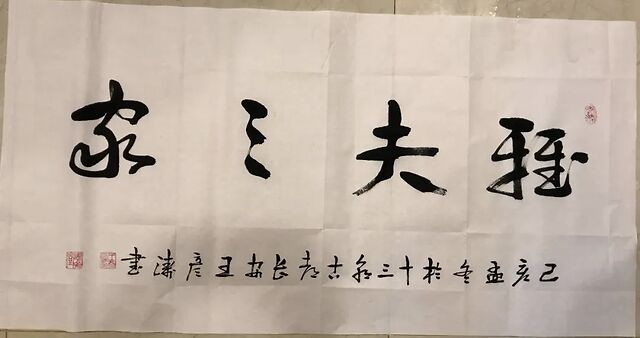 雅夫三家
己亥孟冬於十三朝古都長安王彦濤書